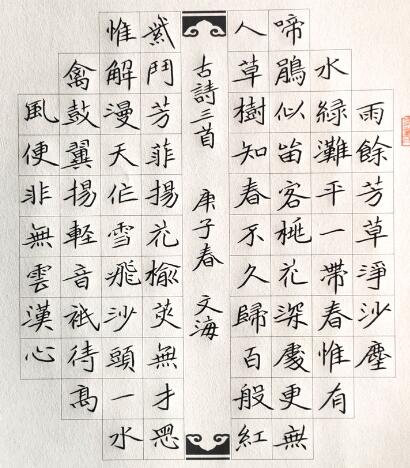 雨餘芳草淨沙塵
水綠灘平一帶春惟有
啼鵑似畄客桃花深處更無
人草樹知春不久歸百般紅
古詩三首 庚子春 文海
紫鬥芳菲揚花榆莢無才思
惟解漫天作雪飛沙頭一水
禽鼓翼揚軽音祇待高
風便非無雲漢心